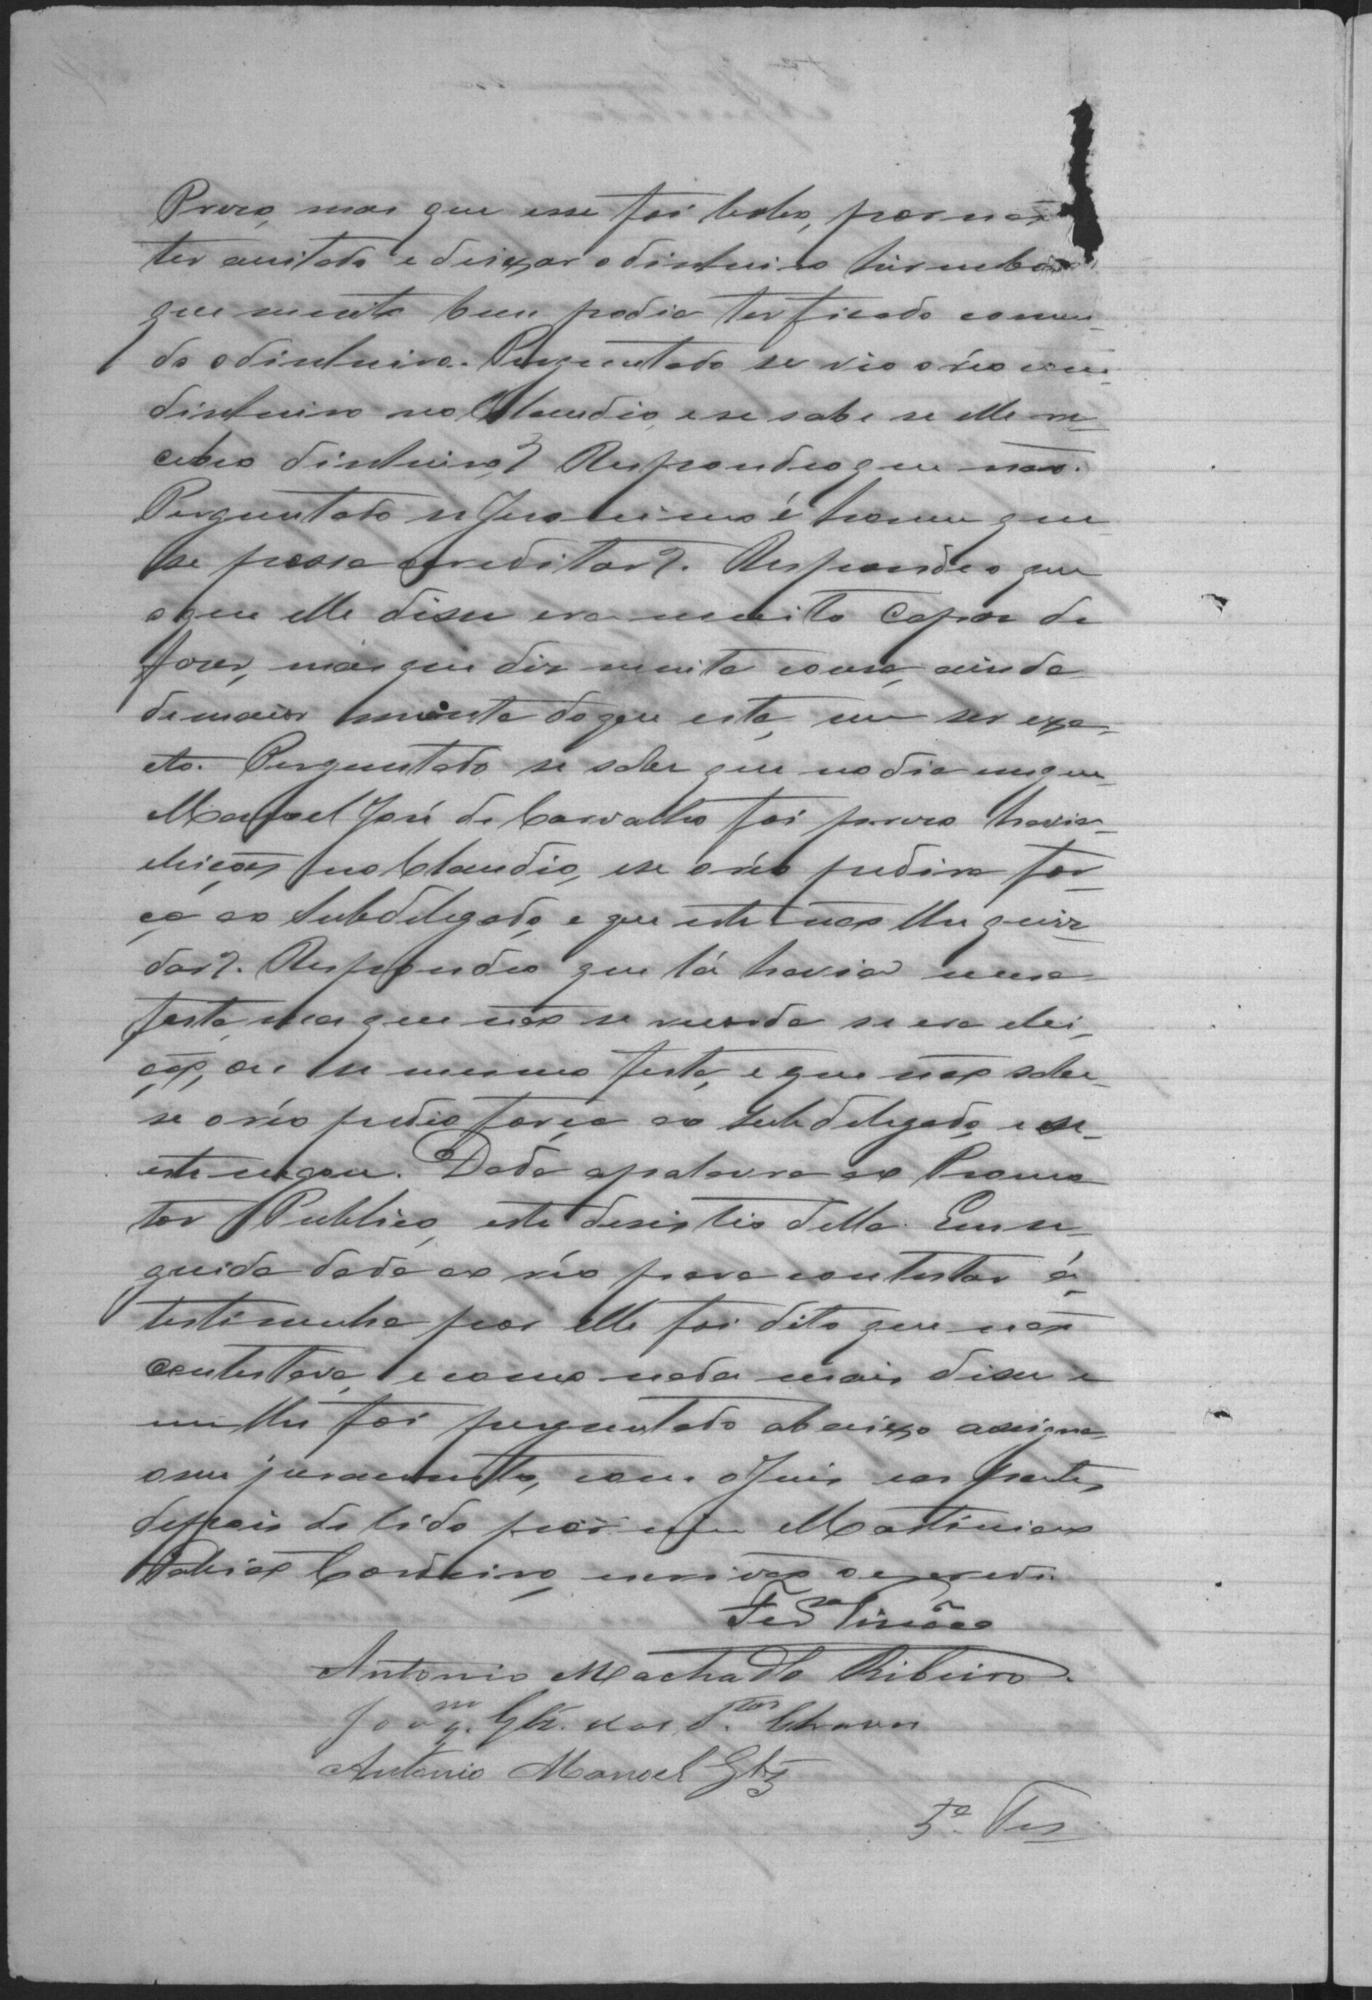 Provo, mas que esse foi tolo, por não
ter aceitado e deixar o dinheiro
que muito bem podia ter ficado comen-
do o dinheiro. Perguntado se vio o réo com
dinheiro no Claudio, e se sabe se elle re-
cebeo dinheiro? Respondeo que não.
Perguntado se Jeronimo é homem que
se possa acreditar?. Respondeo que
o que elle disse era muito capaz de
fazer, mas que diz muita cousa, ainda
de maior monta do que esta, sem ser exa-
cto. Perguntado se sabe que no dia em que
Manoel José de Carvalho foi preso havia
eleições no Claudio, e se o réo pedira for-
ça ao Subdelegado, e que este não lhe quiz
dar?. Respondeo que lá havia uma
festa, mas que não se recorda se era elei-
ção, ou se mesmo festa, e que não sabe
se o réo pedio força ao Subdelegado, e se
este negou. Dada a palavra ao Promo
tor Publico, este desistio della. Em se-
guida dada ao réo para contestar á
testimunha por elle foi dito que não
contestava, e como nada mais disse e
nem lhe foi perguntado abaixo assigna
o seu juramento, com o Juis e as partes,
depois de lido por mim Martiniano
Cordeiro, escrivão o escrevi.
Antonio Machado Ribeiro.
Joaq.m Glz. dos S.tos Chaves
Antonio Manoel Glz
5ª Tes